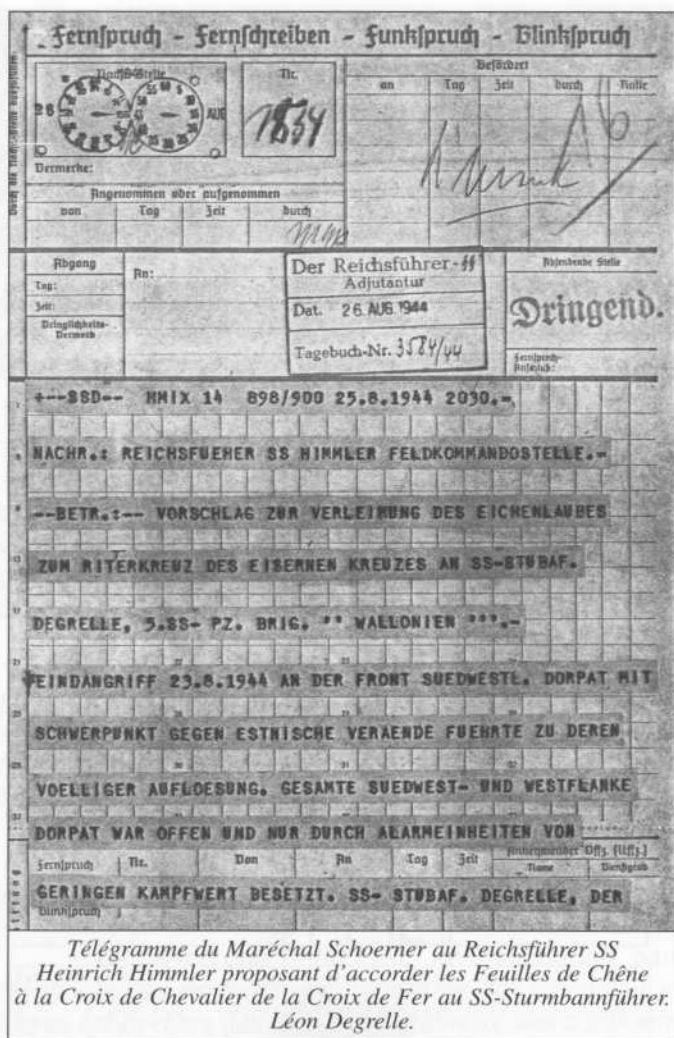 Fernspruch - Fernschreiben - Funkspruch - Blinkspruch
Nachr.-Stelle
Nr.
Befördert
an Tag Zeit durch Rolle
26 AUG
1834
Vermerke:
Angenommen oder aufgenommen
von Tag Zeit durch
Abgang
Tag:
Zeit:
Dringlichkeits-
Vermerk
An:
Der Reichsführer-SS
Adjutantur
Dat. 26. AUG. 1944
Tagebuch-Nr. 3584/44
Absendende Stelle
Dringend.
Fernspruch-
Anschluß:
+--SSD-- HMIX 14 898/900 25.8.1944 2030.-
NACHR.: REICHSFUEHER SS HIMMLER FELDKOMMANDOSTELLE.-
--BETR.:-- VORSCHLAG ZUR VERLEIHUNG DES EICHENLAUBES
ZUM RITERKREUZ DES EISERNEN KREUZES AN SS-STUBAF.
DEGRELLE, 5.SS- PZ. BRIG. '' WALLONIEN '''.-
FEINDANGRIFF 23.8.1944 AN DER FRONT SUEDWESTL. DORPAT MIT
SCHWERPUNKT GEGEN ESTNISCHE VERAENDE FUEHRTE ZU DEREN
VOELLIGER AUFLOESUNG. GESAMTE SUEDWEST- UND WESTFLANKE
DORPAT WAR OFFEN UND NUR DURCH ALARMEINHEITEN VON
Fernspruch Nr. Von An Tag Zeit Annehmender Offz. (Uffz.)
Name Dienstgrad
GERINGEN KAMPFWERT BESETZT. SS- STUBAF. DEGRELLE, DER
Blinkspruch
Télégramme du Maréchal Schoerner au Reichsführer SS
Heinrich Himmler proposant d'accorder les Feuilles de Chêne
à la Croix de Chevalier de la Croix de Fer au SS-Sturmbannführer.
Léon Degrelle.